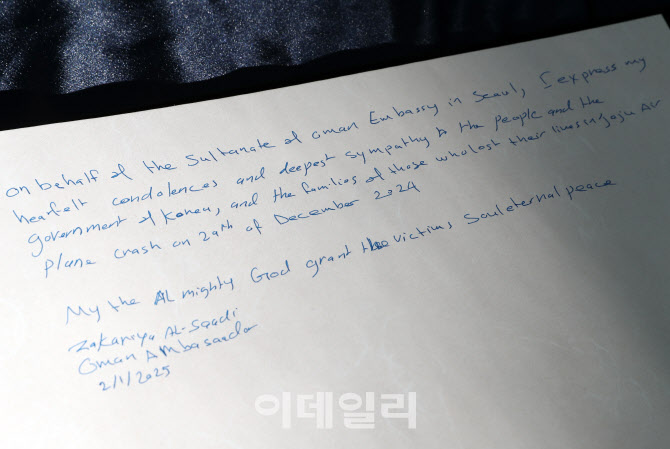 on behalf of the Sultanate of Oman Embassy in Seoul, I express my
hearfelt condolences and deepest sympathy to the people and the
government of Korea, and the families of those who lost their lives in Jeju Air
plane crash on 29th of December 2024
My the Almighty God grant the victims soul eternal peace
Zakariya AL-Saadi
Oman Ambasador
2/1/2025
이데일리